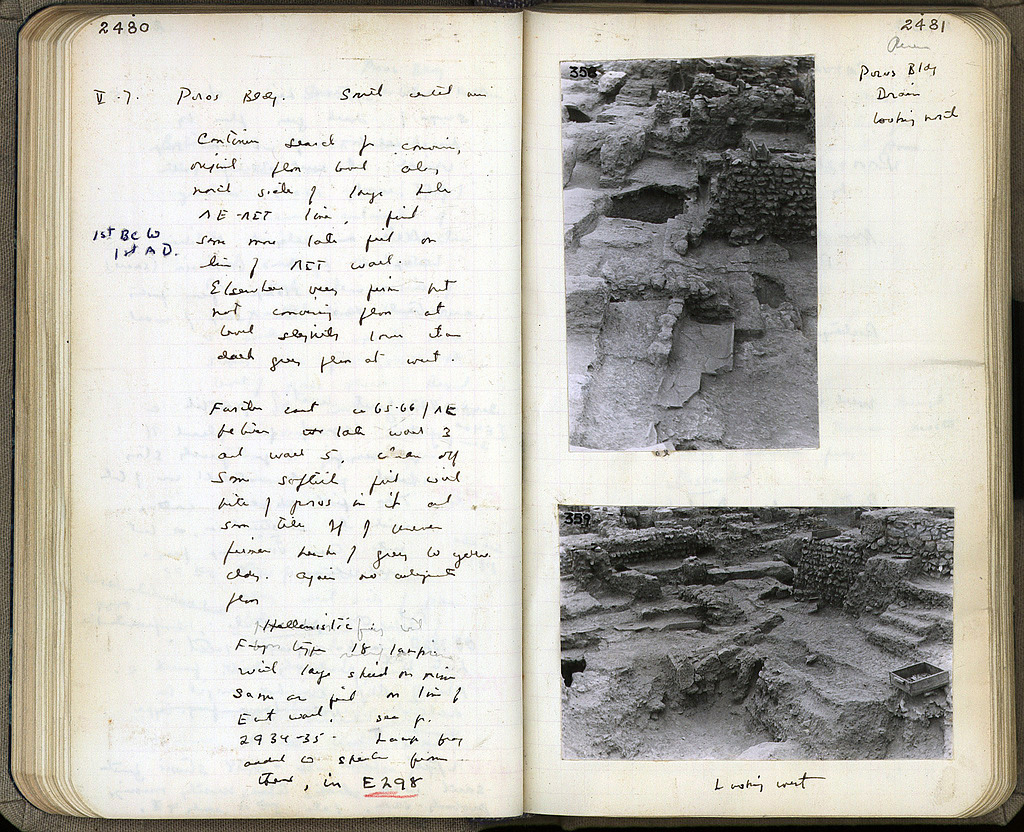 2480
V. 7. Poros Bldg. South central area
Continue search for convincing
original floor level along
north side of large hole
ΛE-ΛΣT line, find
some more late fill on
line of ΛΣT wall.
Elsewhere very firm but
not convincing floor at
level slightly lower than
dark grey floor at west.
1st BC to
1st A D.
Further east ca 65-66/ΛE
between late wall 3
and wall 5, clean off
some softish fill with
bits of poros in it and
some tile off of uneven
firmer of grey to yellow
clay. Again no adequate
floor
Hellenistic
type 18 lamp
with large shield on rim
same as fill on line of
East wall. see p.
2934-35- Lamp frag
added to from
there, in E298
2481
Poros Bldg
Drain
looking north
358
359
Looking west